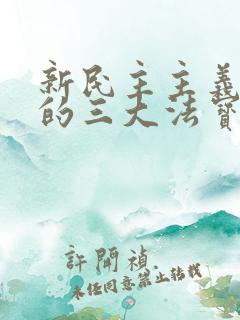 新民主主義
的三大法寶
許開禎
未经同意禁止转载